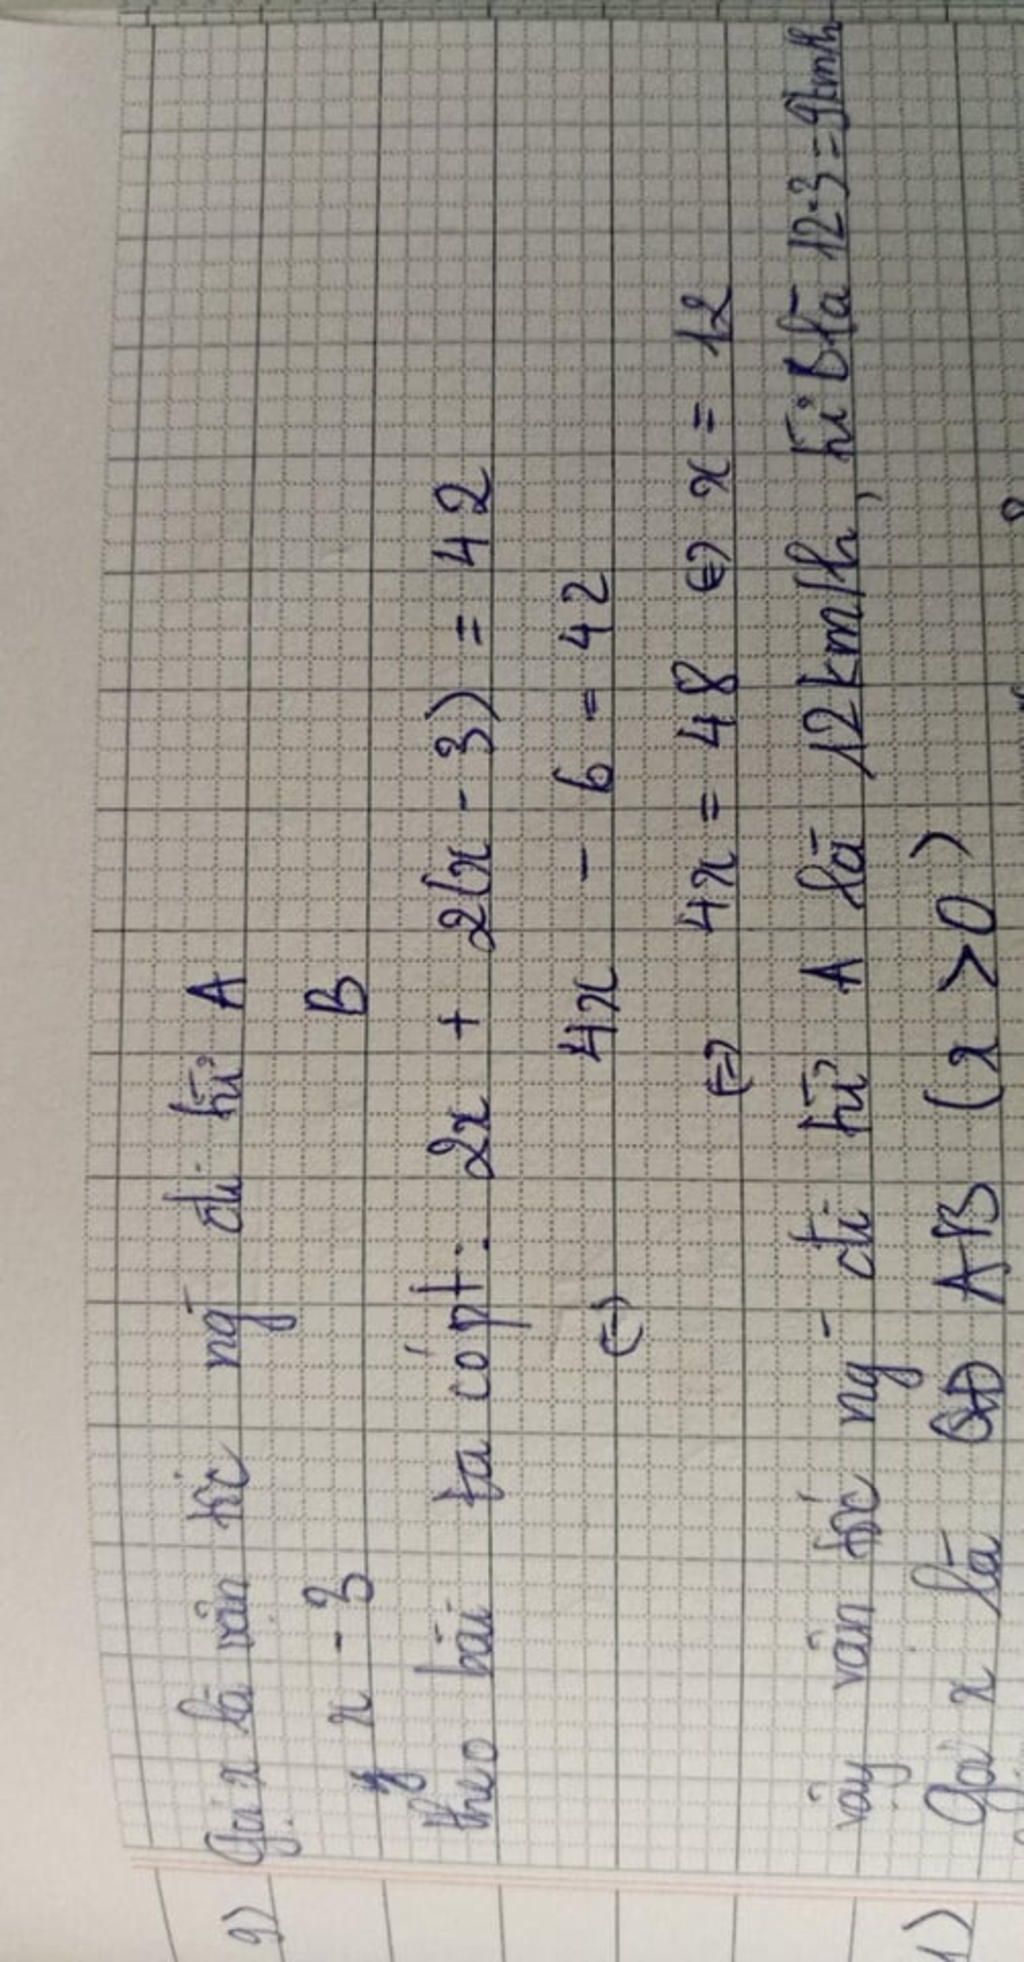 9) Gọi x là vân tốc ng đi từ A
x - 3 B
theo bài ta có pt: 2x + 2(x - 3) = 42
(=) 4x - 6 = 42
(=) 4x = 48 (=) x = 12
vậy vân tốc ng đi từ A là 12 km/h, từ B là 12-3=9km/h
1) Gọi x là QĐ AB (x > 0)